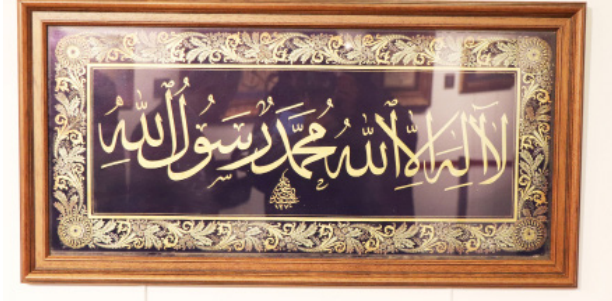 لَاۤ اِلٰهَ اِلَّا اللّٰهُ مُحَمَّدٌ رَسُولُ اللّٰهِ